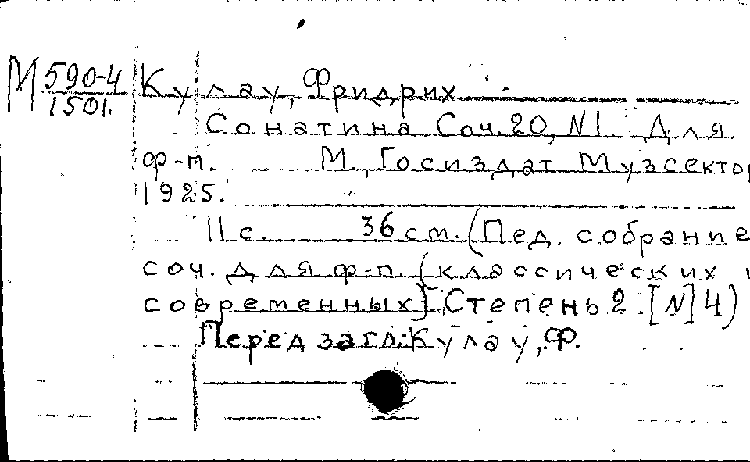 М 590-4 Кулау, Фридрих
1501.
Сонатина Соч. 20, N 1. Для
ф-п. М., Госиздат Музсектор
1925.
11 с. 36 см. (Пед. собрание
соч. для ф-п. (классических и
современных). Степень 2. [N] 4)
Перед загл.: Кулау, Ф.